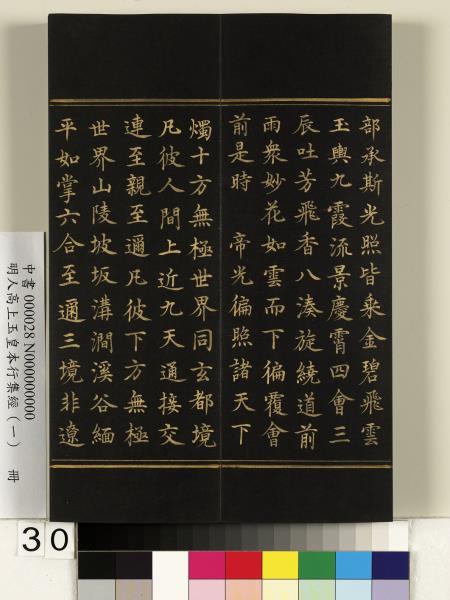 部承斯光照皆乘金碧飛雲
玉輿九霞流景慶霄四會三
辰吐芳飛香八湊旋繞道前
雨衆妙花如雲而下徧覆會
前是時　帝光徧照諸天下
燭十方無極世界同玄都境
凡彼人間上近九天通接交
連至親至邇凡彼下方無極
世界山陵坡坂溝澗溪谷緬
平如掌六合至邇三境非遼
中書 000028 N000000000
明人高上玉皇本行集經（一） 冊
30